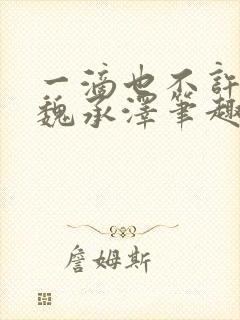 一滴也不許
魏承澤筆趣
詹姆斯